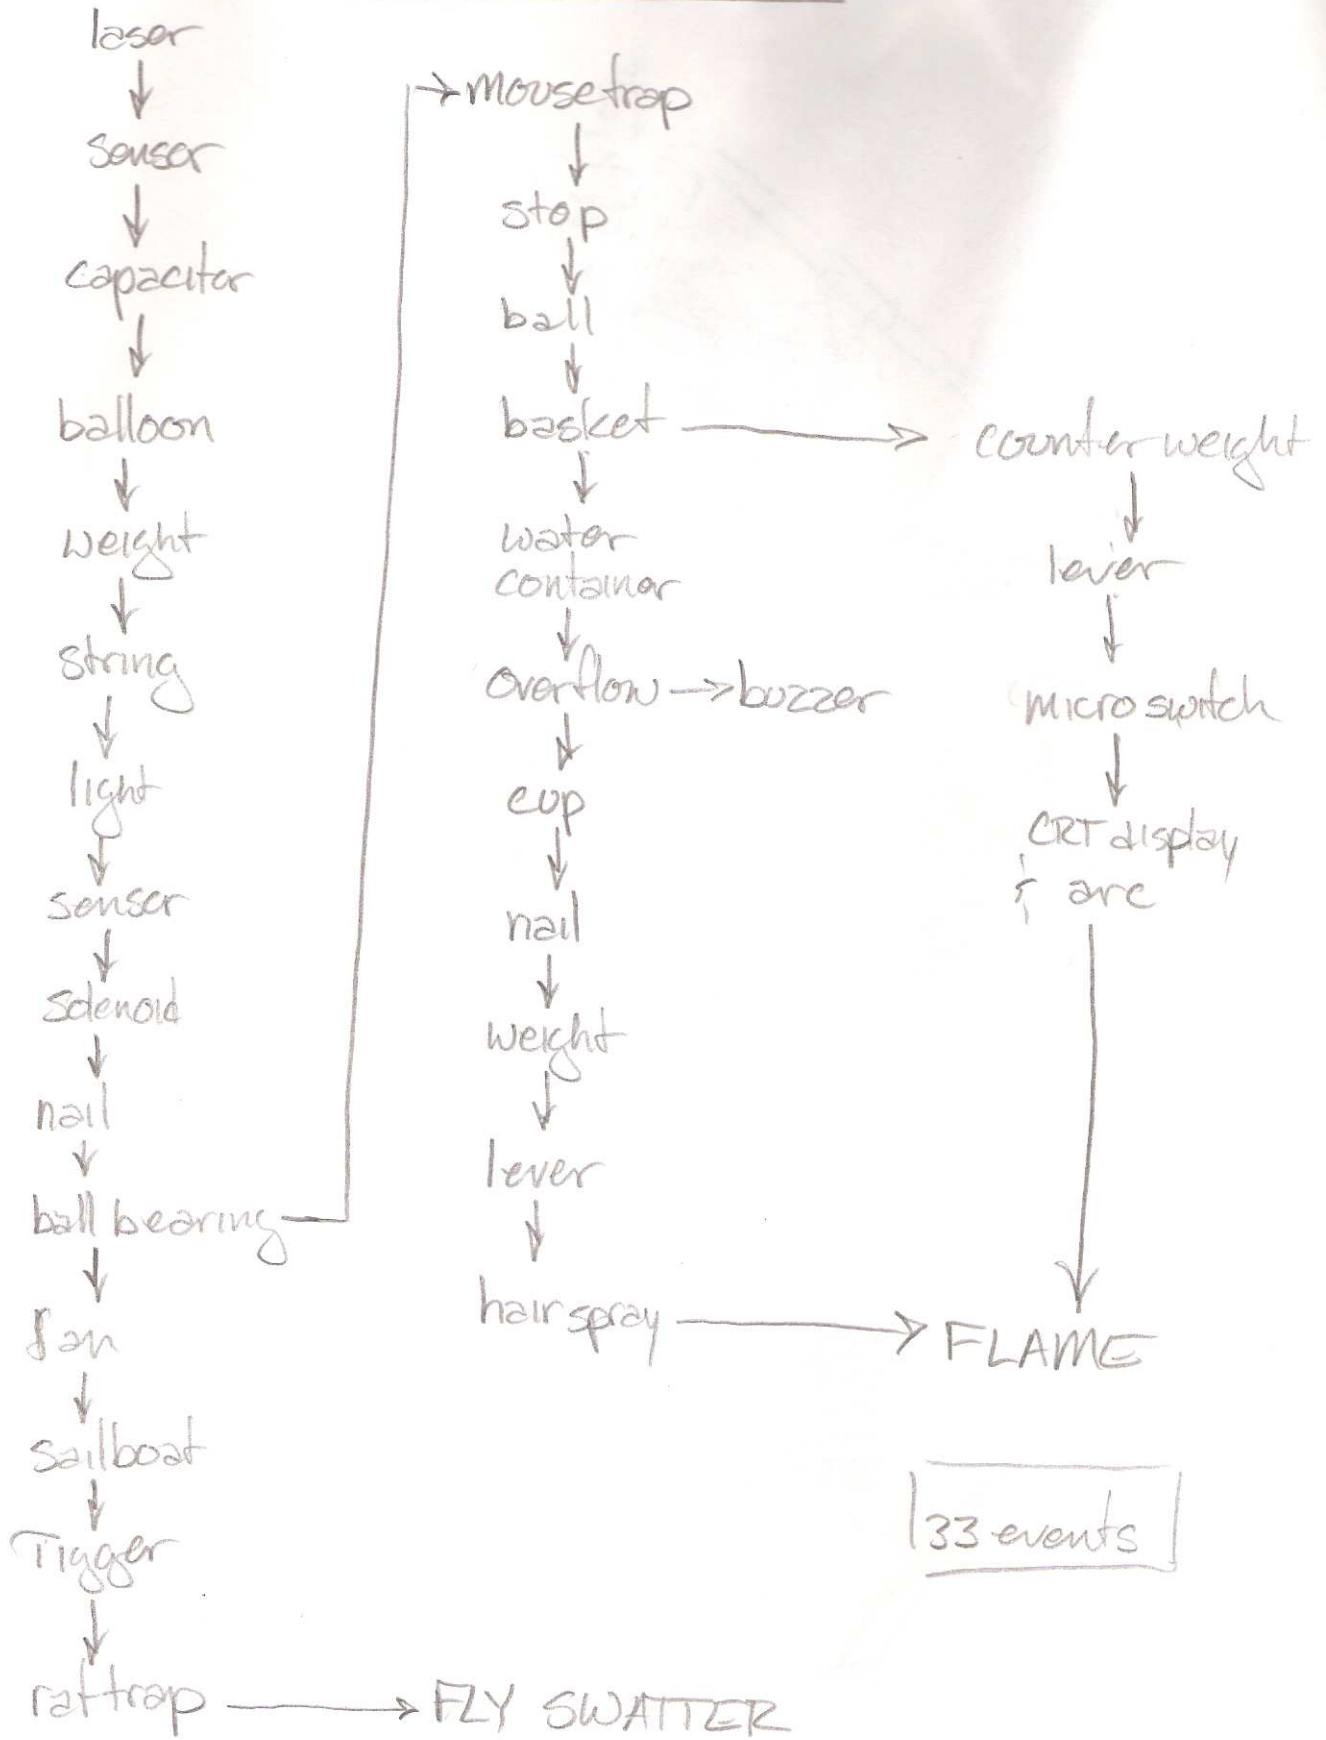 laser
sensor
capacitor
balloon
weight
string
light
sensor
solenoid
nail
ball bearing
fan
sailboat
Tigger
rattrap
FLY SWATTER
mousetrap
stop
ball
basket
water
container
overflow
buzzer
cup
nail
weight
lever
hairspray
FLAME
counterweight
lever
microswitch
CRT display
& arc
33 events